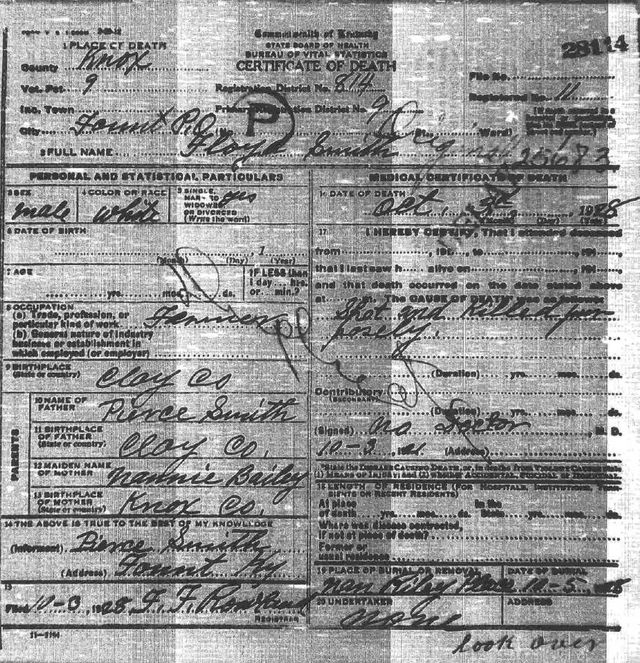 Commonwealth of Kentucky
STATE BOARD OF HEALTH
BUREAU OF VITAL STATISTICS
CERTIFICATE OF DEATH
28114
1 PLACE OF DEATH
County Knox
Vot. Pct 9
Registration District No. 814
File No.
Inc. Town
Primary Registration District No. 9
Registered No. 11
City Fount P.O. St. Ward)
P
2 FULL NAME Floyd Smith
25683
PERSONAL AND STATISTICAL PARTICULARS
3 SEX male
4 COLOR OR RACE white
5 SINGLE, MARRIED, WIDOWED OR DIVORCED (Write the word) yes
6 DATE OF BIRTH
(Month) (Day) (Year)
7 AGE
yrs. mos. ds.
IF LESS than 1 day hrs. or min.?
8 OCCUPATION
(a) Trade, profession, or particular kind of work Farmer
(b) General nature of industry business or establishment in which employed (or employer)
9 BIRTHPLACE (State or country) Clay Co
PARENTS
10 NAME OF FATHER Pierce Smith
11 BIRTHPLACE OF FATHER (State or country) Clay Co.
12 MAIDEN NAME OF MOTHER Nannie Bailey
13 BIRTHPLACE OF MOTHER (State or country) Knox Co.
14 THE ABOVE IS TRUE TO THE BEST OF MY KNOWLEDGE
(Informant) Pierce Smith
(Address) Fount Ky
15
Filed 10-3, 1928
REGISTRAR
11-1184
MEDICAL CERTIFICATE OF DEATH
16 DATE OF DEATH
Oct. 3rd, 1928
(Month) (Day) (Year)
17 I HEREBY CERTIFY, That I attended deceased
from , 191 , to , 191 ,
that I last saw h alive on , 191 ,
and that death occurred on the date stated above
at The CAUSE OF DEATH was as follows:
Shot and Killed pur
posely.
(Duration) yrs. mos. ds.
Contributory (SECONDARY)
(Duration) yrs. mos. ds.
(Signed) no Doctor M. D.
10-3, (Address)
18 LENGTH OF RESIDENCE (FOR HOSPITALS, INSTITUTIONS, TRANSIENTS OR RECENT RESIDENTS)
At place of death yrs. mos. ds. In the State yrs. mos. ds.
Where was disease contracted,
if not at place of death?
Former or usual residence
19 PLACE OF BURIAL OR REMOVAL
DATE OF BURIAL
10-5 1928
20 UNDERTAKER none
ADDRESS
look over